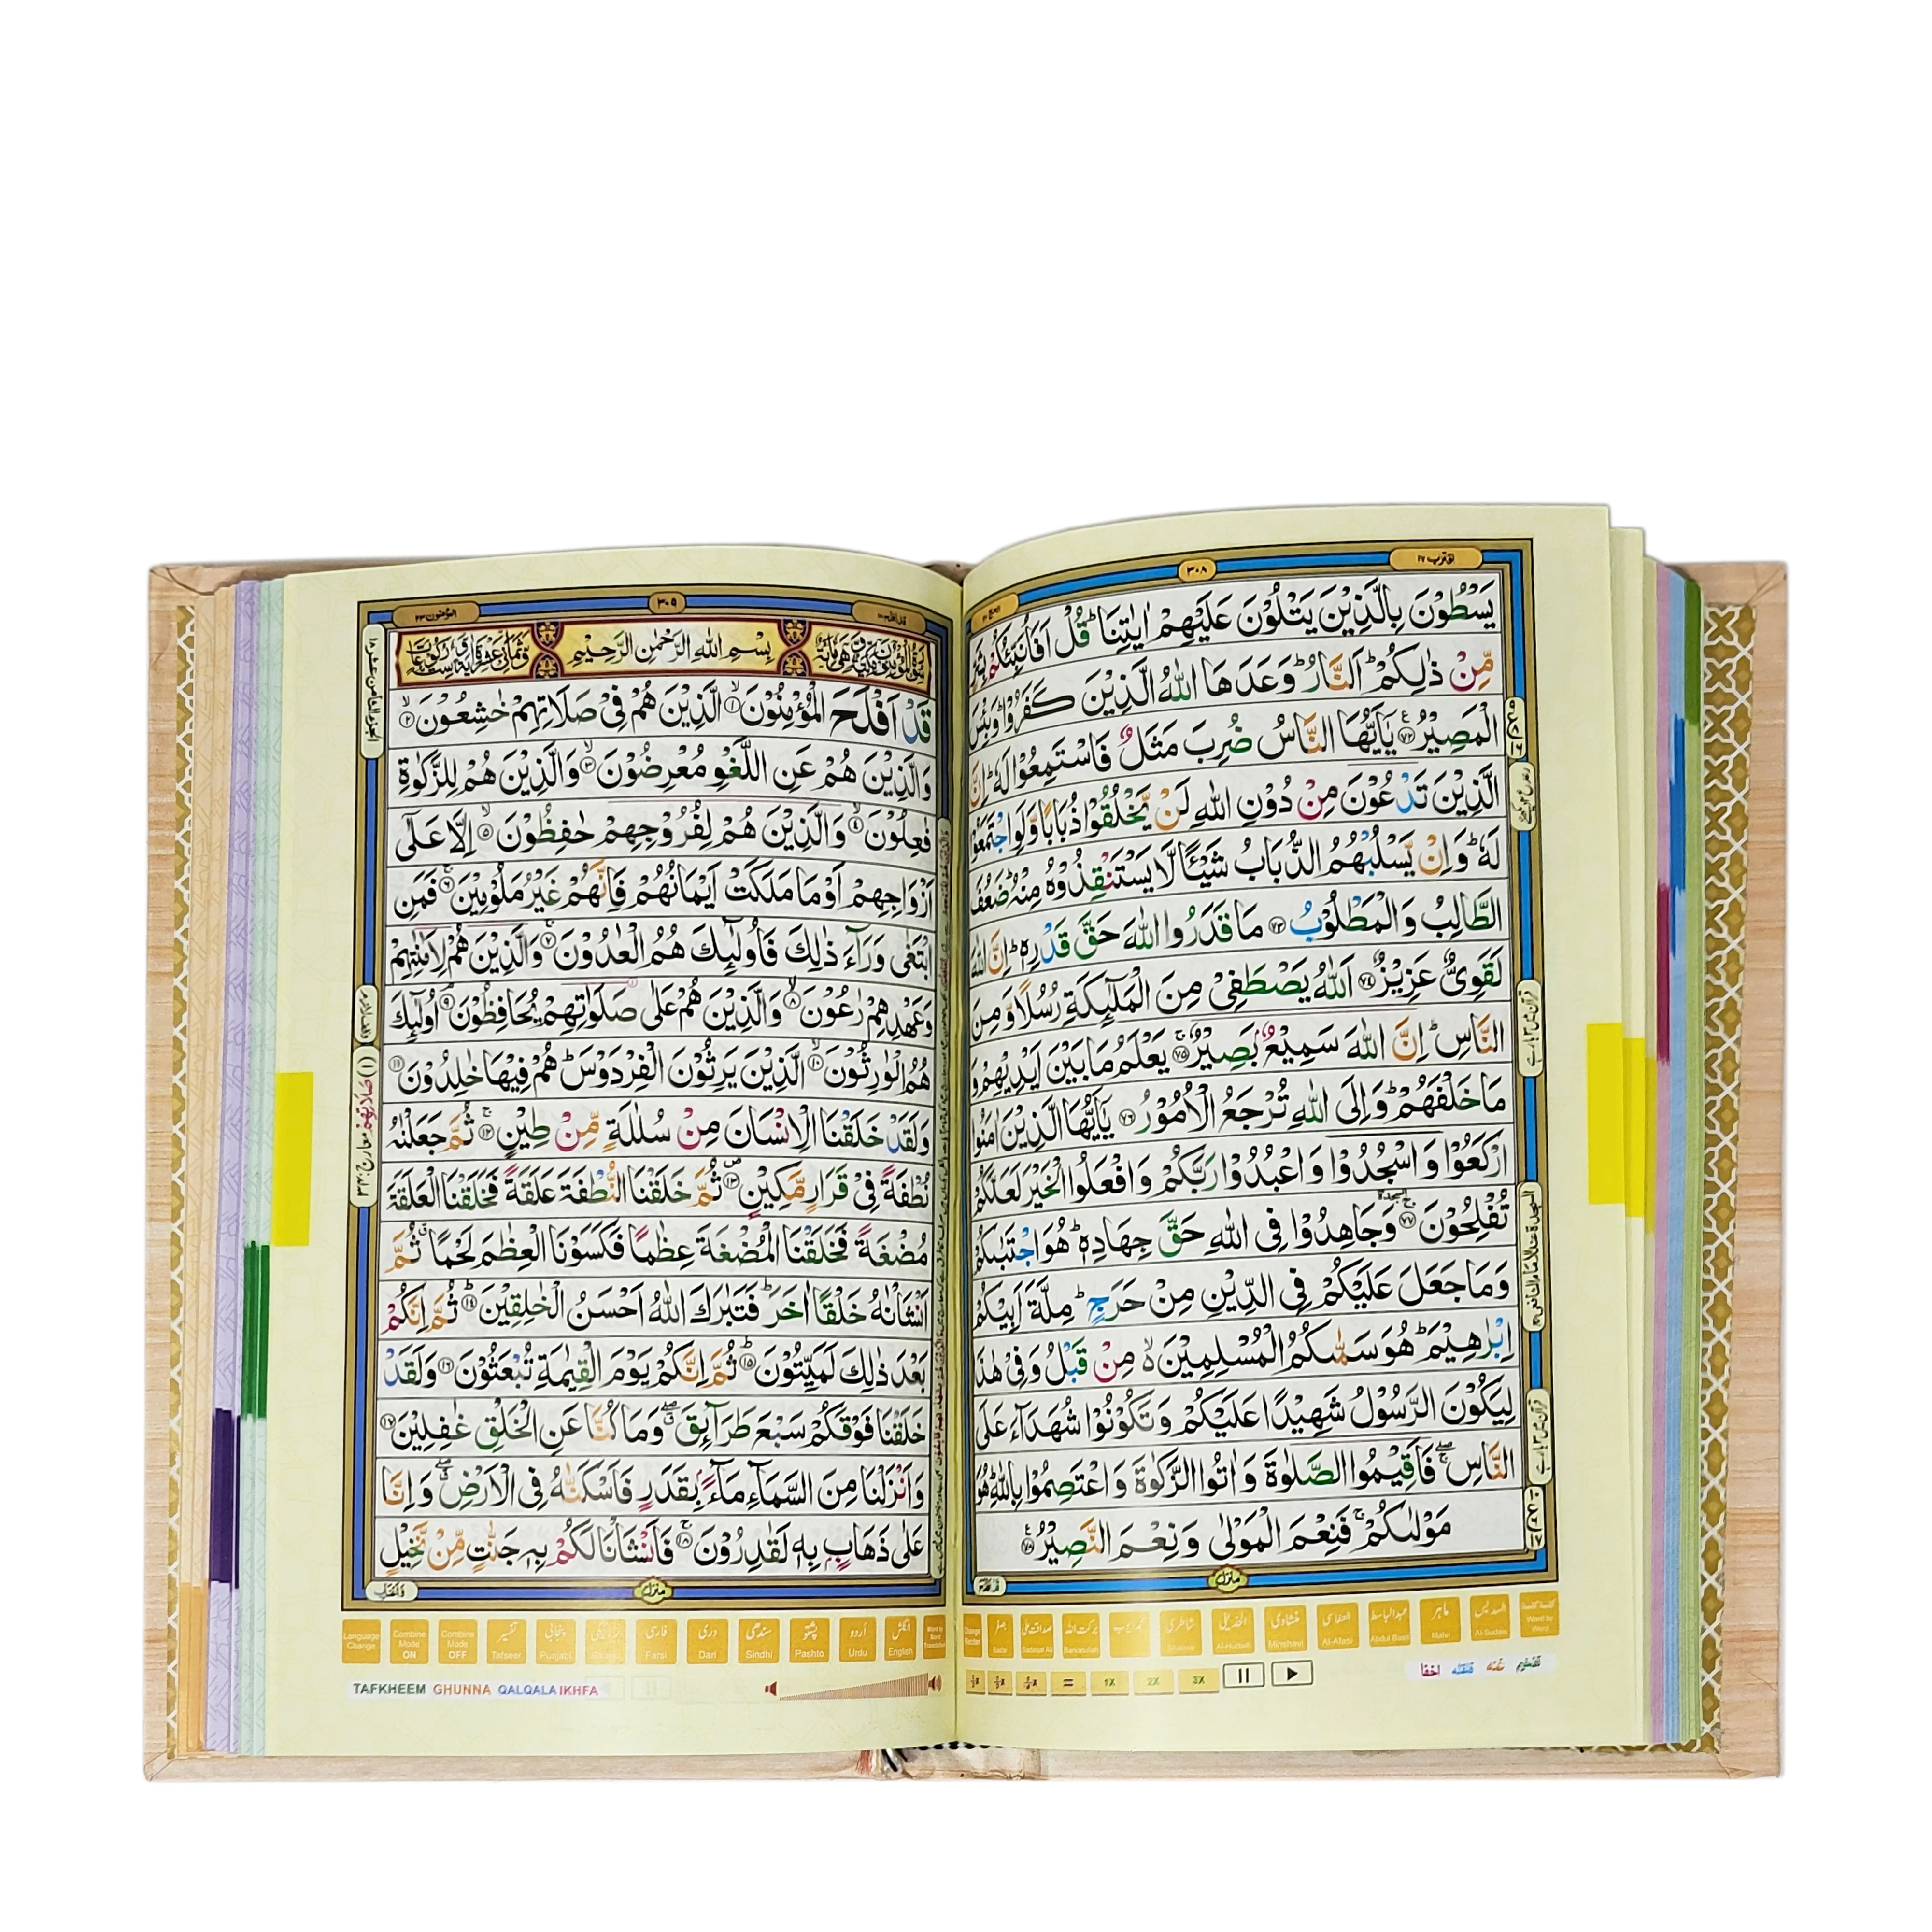 اقترب ١٧
٣٠٨
الحج ٢٢
يَسْطُوْنَ بِالَّذِيْنَ يَتْلُوْنَ عَلَيْهِمْ اٰيٰتِنَا ؕ قُلْ اَفَاُنَبِّئُكُمْ بِشَرٍّ
مِّنْ ذٰلِكُمْ ؕ اَلنَّارُ ؕ وَعَدَهَا اللّٰهُ الَّذِيْنَ كَفَرُوْا ؕ وَبِئْسَ
الْمَصِيْرُ ۧ﴿۷۲﴾ يٰۤاَيُّهَا النَّاسُ ضُرِبَ مَثَلٌ فَاسْتَمِعُوْا لَهٗ ؕ اِنَّ
الَّذِيْنَ تَدْعُوْنَ مِنْ دُوْنِ اللّٰهِ لَنْ يَّخْلُقُوْا ذُبَابًا وَّلَوِ اجْتَمَعُوْا
لَهٗ ؕ وَاِنْ يَّسْلُبْهُمُ الذُّبَابُ شَيْـًٔا لَّا يَسْتَنْقِذُوْهُ مِنْهُ ؕ ضَعُفَ
الطَّالِبُ وَالْمَطْلُوْبُ ﴿۷۳﴾ مَا قَدَرُوا اللّٰهَ حَقَّ قَدْرِهٖ ؕ اِنَّ اللّٰهَ
لَقَوِيٌّ عَزِيْزٌ ﴿۷۴﴾ اَللّٰهُ يَصْطَفِيْ مِنَ الْمَلٰٓئِكَةِ رُسُلًا وَّمِنَ
النَّاسِ ؕ اِنَّ اللّٰهَ سَمِيْعٌۢ بَصِيْرٌ ۚ﴿۷۵﴾ يَعْلَمُ مَا بَيْنَ اَيْدِيْهِمْ وَ
مَا خَلْفَهُمْ ؕ وَاِلَى اللّٰهِ تُرْجَعُ الْاُمُوْرُ ﴿۷۶﴾ يٰۤاَيُّهَا الَّذِيْنَ اٰمَنُوا
ارْكَعُوْا وَاسْجُدُوْا وَاعْبُدُوْا رَبَّكُمْ وَافْعَلُوا الْخَيْرَ لَعَلَّكُمْ
تُفْلِحُوْنَ ۚ﴿۷۷﴾ وَجَاهِدُوْا فِي اللّٰهِ حَقَّ جِهَادِهٖ ؕ هُوَ اجْتَبٰىكُمْ
وَمَا جَعَلَ عَلَيْكُمْ فِي الدِّيْنِ مِنْ حَرَجٍ ؕ مِلَّةَ اَبِيْكُمْ
اِبْرٰهِيْمَ ؕ هُوَ سَمّٰىكُمُ الْمُسْلِمِيْنَ ۙ۬ مِنْ قَبْلُ وَفِيْ هٰذَا
لِيَكُوْنَ الرَّسُوْلُ شَهِيْدًا عَلَيْكُمْ وَتَكُوْنُوْا شُهَدَآءَ عَلَى
النَّاسِ ۚۖ فَاَقِيْمُوا الصَّلٰوةَ وَاٰتُوا الزَّكٰوةَ وَاعْتَصِمُوْا بِاللّٰهِ ؕ هُوَ
مَوْلٰىكُمْ ۚ فَنِعْمَ الْمَوْلٰى وَنِعْمَ النَّصِيْرُ ۧ﴿۷۸﴾
منزل
کلمة کلمة Word by Word
السدیس Al-Sudais
ماہر Mahir
عبدالباسط Abdul Basit
العفاسی Al-Afasi
منشاوی Minshawi
الحذیفی Al-Hudaifi
شاطری
برکت اللہ Barkatullah
صداقت علی Sadaqat Ali
Change Reciter
تفخیم غنہ قلقلہ اخفا
= 1X 2X 3X
قد افلح ١٨
٣٠٩
المؤمنون ٢٣
بِسْمِ اللّٰهِ الرَّحْمٰنِ الرَّحِيْمِ
قَدْ اَفْلَحَ الْمُؤْمِنُوْنَ ۙ﴿۱﴾ الَّذِيْنَ هُمْ فِيْ صَلَاتِهِمْ خٰشِعُوْنَ ۙ﴿۲﴾
وَالَّذِيْنَ هُمْ عَنِ اللَّغْوِ مُعْرِضُوْنَ ۙ﴿۳﴾ وَالَّذِيْنَ هُمْ لِلزَّكٰوةِ
فٰعِلُوْنَ ۙ﴿۴﴾ وَالَّذِيْنَ هُمْ لِفُرُوْجِهِمْ حٰفِظُوْنَ ۙ﴿۵﴾ اِلَّا عَلٰۤى
اَزْوَاجِهِمْ اَوْ مَا مَلَكَتْ اَيْمَانُهُمْ فَاِنَّهُمْ غَيْرُ مَلُوْمِيْنَ ۚ﴿۶﴾ فَمَنِ
ابْتَغٰى وَرَآءَ ذٰلِكَ فَاُولٰٓئِكَ هُمُ الْعٰدُوْنَ ۚ﴿۷﴾ وَالَّذِيْنَ هُمْ لِاَمٰنٰتِهِمْ
وَعَهْدِهِمْ رٰعُوْنَ ۙ﴿۸﴾ وَالَّذِيْنَ هُمْ عَلٰى صَلَوٰتِهِمْ يُحَافِظُوْنَ ۘ﴿۹﴾ اُولٰٓئِكَ
هُمُ الْوٰرِثُوْنَ ۙ﴿۱۰﴾ الَّذِيْنَ يَرِثُوْنَ الْفِرْدَوْسَ ؕ هُمْ فِيْهَا خٰلِدُوْنَ ﴿۱۱﴾
وَلَقَدْ خَلَقْنَا الْاِنْسَانَ مِنْ سُلٰلَةٍ مِّنْ طِيْنٍ ۚ﴿۱۲﴾ ثُمَّ جَعَلْنٰهُ
نُطْفَةً فِيْ قَرَارٍ مَّكِيْنٍ ۪﴿۱۳﴾ ثُمَّ خَلَقْنَا النُّطْفَةَ عَلَقَةً فَخَلَقْنَا الْعَلَقَةَ
مُضْغَةً فَخَلَقْنَا الْمُضْغَةَ عِظٰمًا فَكَسَوْنَا الْعِظٰمَ لَحْمًا ۗ ثُمَّ
اَنْشَاْنٰهُ خَلْقًا اٰخَرَ ؕ فَتَبٰرَكَ اللّٰهُ اَحْسَنُ الْخٰلِقِيْنَ ؕ﴿۱۴﴾ ثُمَّ اِنَّكُمْ
بَعْدَ ذٰلِكَ لَمَيِّتُوْنَ ؕ﴿۱۵﴾ ثُمَّ اِنَّكُمْ يَوْمَ الْقِيٰمَةِ تُبْعَثُوْنَ ﴿۱۶﴾ وَلَقَدْ
خَلَقْنَا فَوْقَكُمْ سَبْعَ طَرَآئِقَ ۗۖ وَمَا كُنَّا عَنِ الْخَلْقِ غٰفِلِيْنَ ﴿۱۷﴾
وَاَنْزَلْنَا مِنَ السَّمَآءِ مَآءًۢ بِقَدَرٍ فَاَسْكَنّٰهُ فِي الْاَرْضِ ۗۖ وَاِنَّا
عَلٰى ذَهَابٍۭ بِهٖ لَقٰدِرُوْنَ ۚ﴿۱۸﴾ فَاَنْشَاْنَا لَكُمْ بِهٖ جَنّٰتٍ مِّنْ نَّخِيْلٍ
منزل
وَاَعْنَابٍ
Word by Word Translation
انگلش English
اُردو Urdu
پشتو Pashto
سندھی Sindhi
دری Dari
فارسی Farsi
پنجابی Punjabi
تفسیر Tafseer
Combine Mode OFF
Combine Mode ON
Language Change
TAFKHEEM GHUNNA QALQALA IKHFA